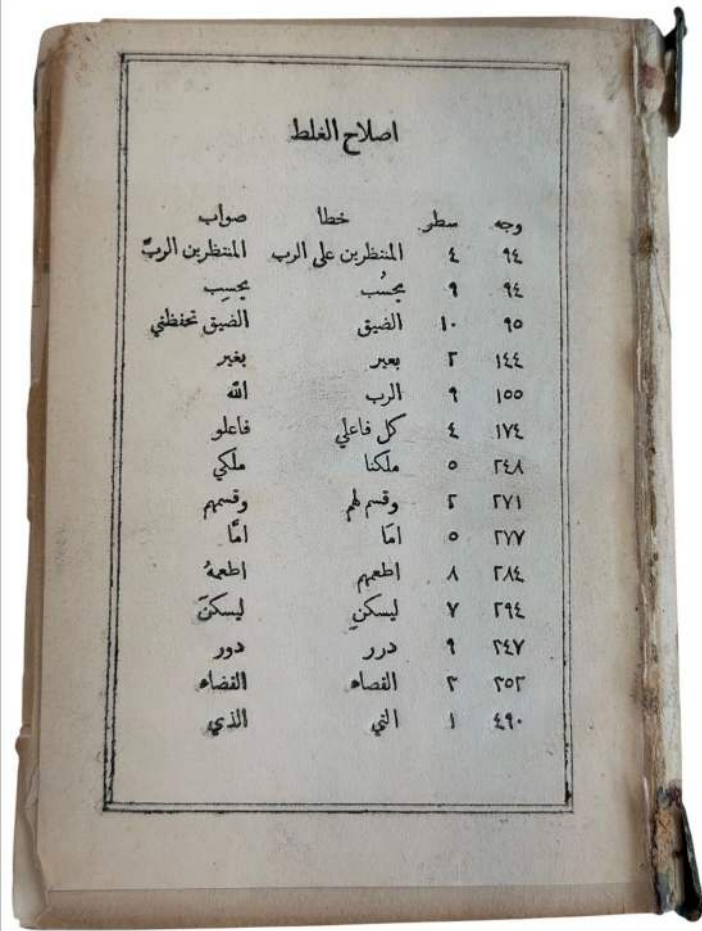 اصلاح الغلط
وجه سطر خطا صواب
٩٤ ٤ المنتظرين على الرب المنتظرين الربّ
٩٤ ٩ يحسُب يحسِب
٩٥ ١٠ الضيق الضيق تحفظني
١٤٤ ٢ بعير بغير
١٥٥ ٩ الرب الله
١٧٤ ٤ كل فاعلي فاعلو
٢٤٨ ٥ ملكنا ملكي
٢٧١ ٢ وقسم لهم وقسمهم
٢٧٧ ٥ امَا امَّا
٢٨٤ ٨ اطعمهم اطعمهُ
٢٩٤ ٧ ليسكنِ ليسكنَ
٢٤٧ ٩ درر دور
٢٥٢ ٣ القصاه القضاه
٤٩٠ ١ التي الذي